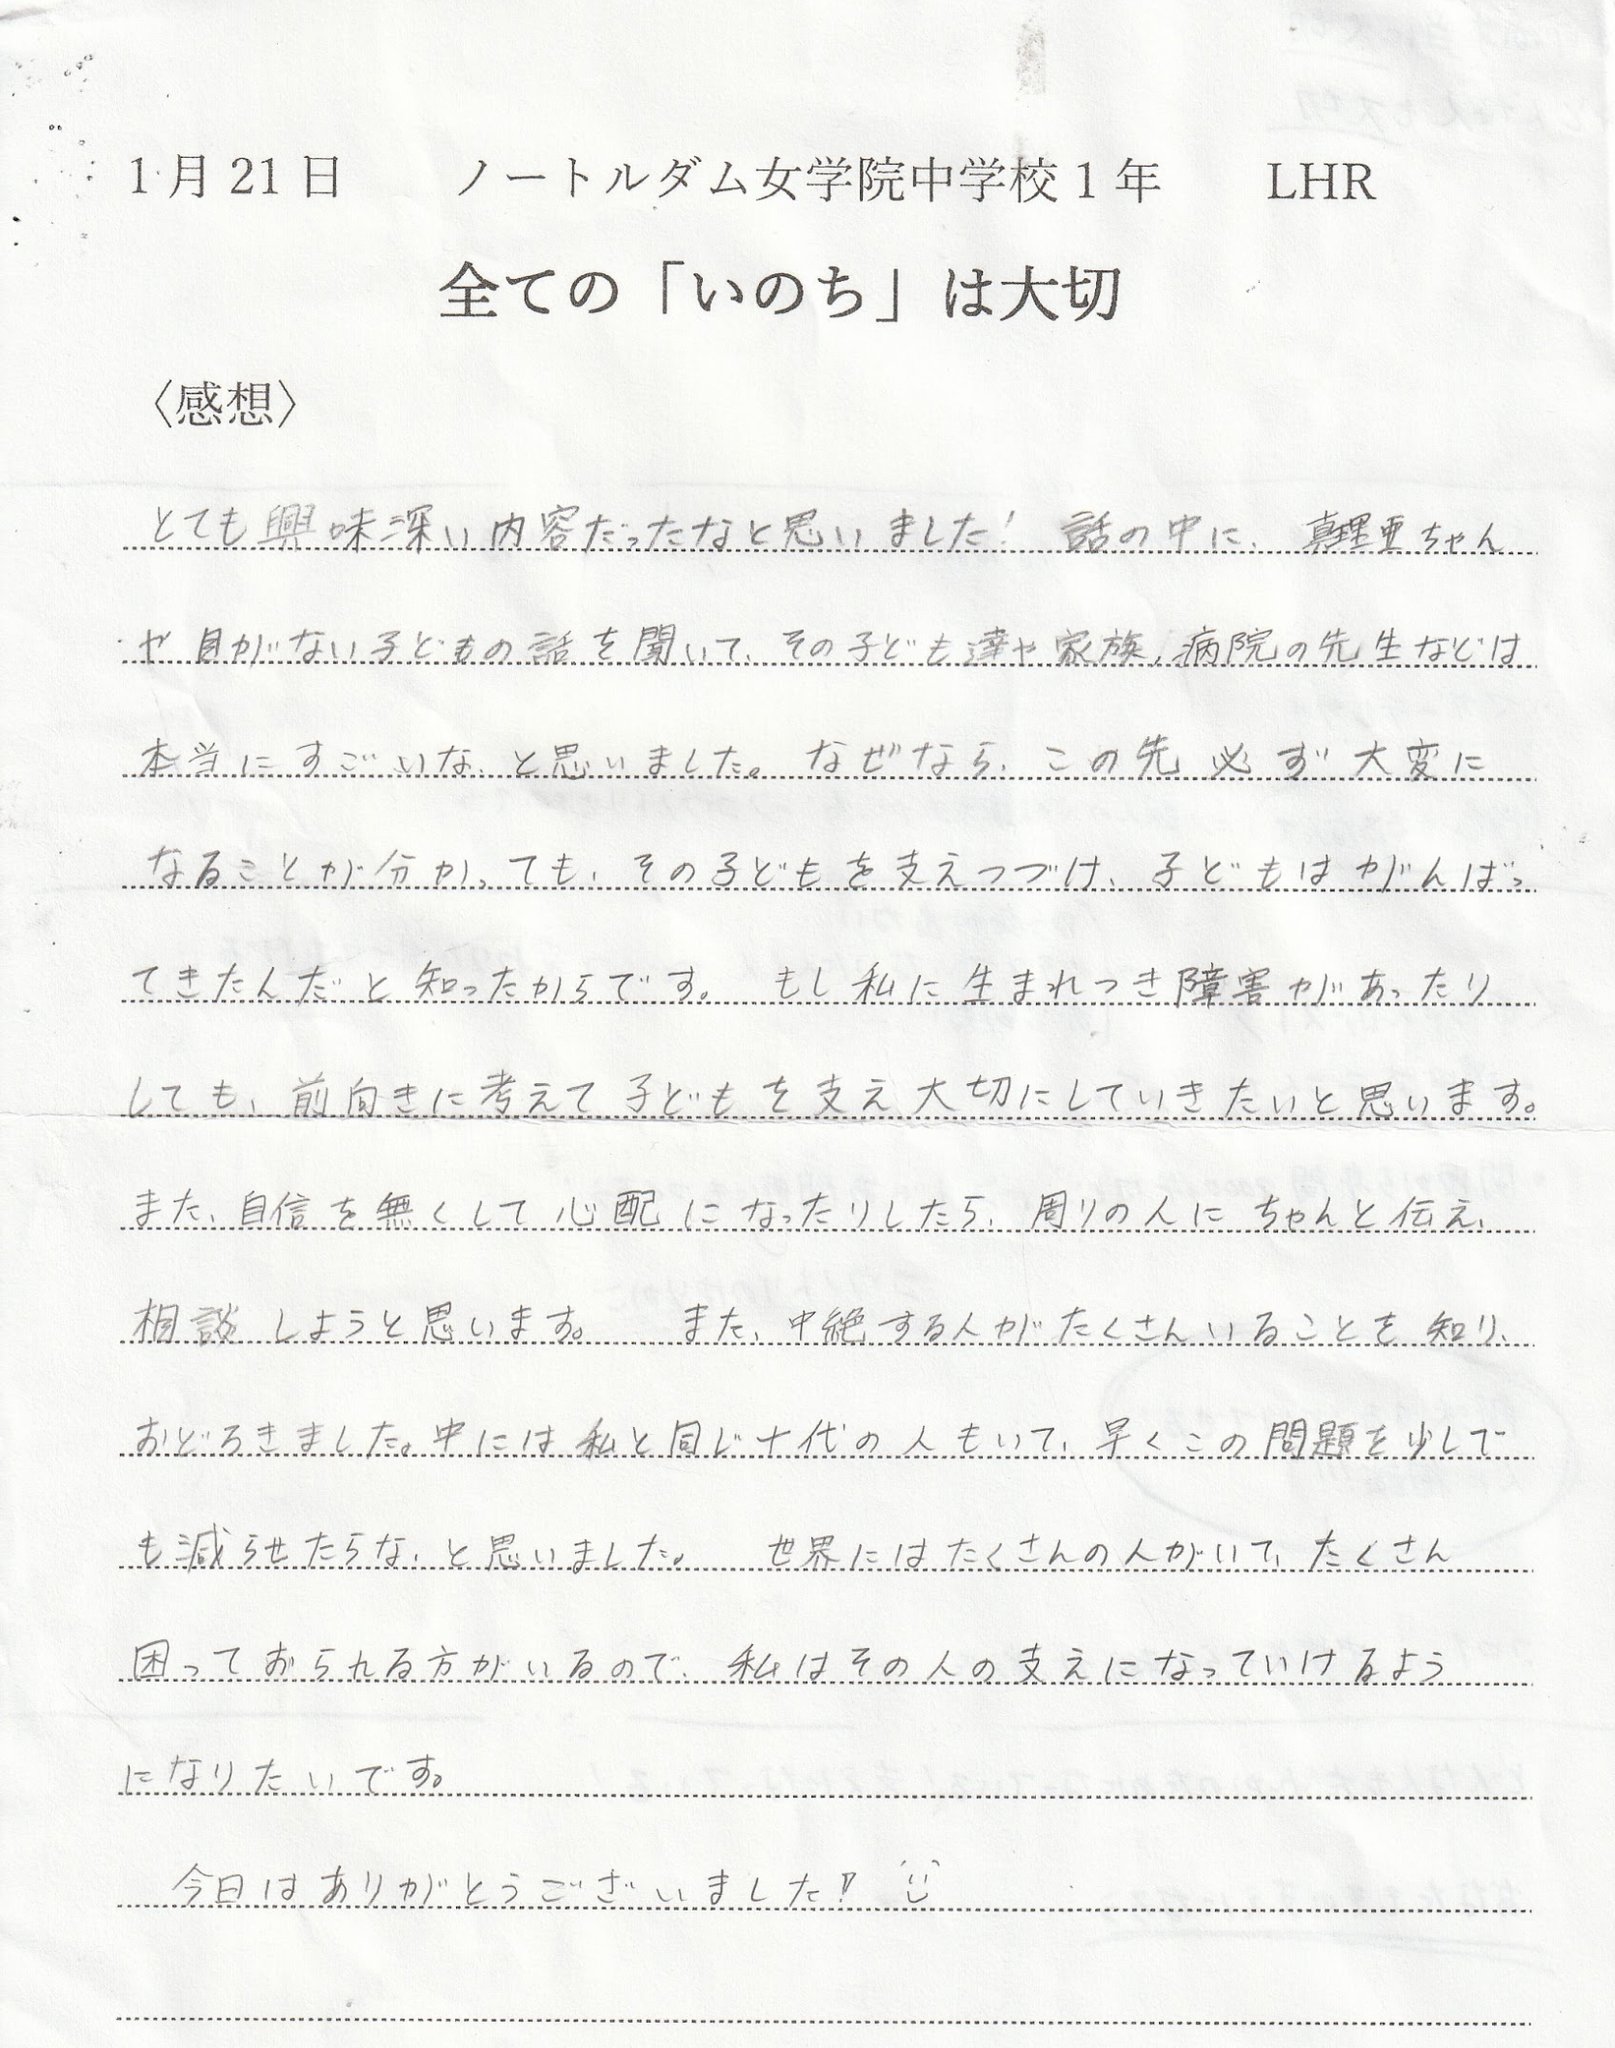 1月21日 ノートルダム女学院中学校1年 LHR
全ての「いのち」は大切
〈感想〉
とても興味深い内容だったなと思いました！ 話の中に、真理亜ちゃん
や目がない子どもの話を聞いて、その子ども達や家族、病院の先生などは
本当にすごいな、と思いました。なぜなら、この先必ず大変に
なることが分かっても、その子どもを支えつづけ、子どもはがんばっ
てきたんだと知ったからです。もし私に生まれつき障害があったり
しても、前向きに考えて子どもを支え大切にしていきたいと思います。
また、自信を無くして心配になったりしたら、周りの人にちゃんと伝え、
相談しようと思います。 また、中絶する人がたくさんいることを知り、
おどろきました。中には私と同じ十代の人もいて、早くこの問題を少しで
も減らせたらな、と思いました。 世界にはたくさんの人がいて、たくさん
困っておられる方がいるので、私はその人の支えになっていけるよう
になりたいです。
今日はありがとうございました！